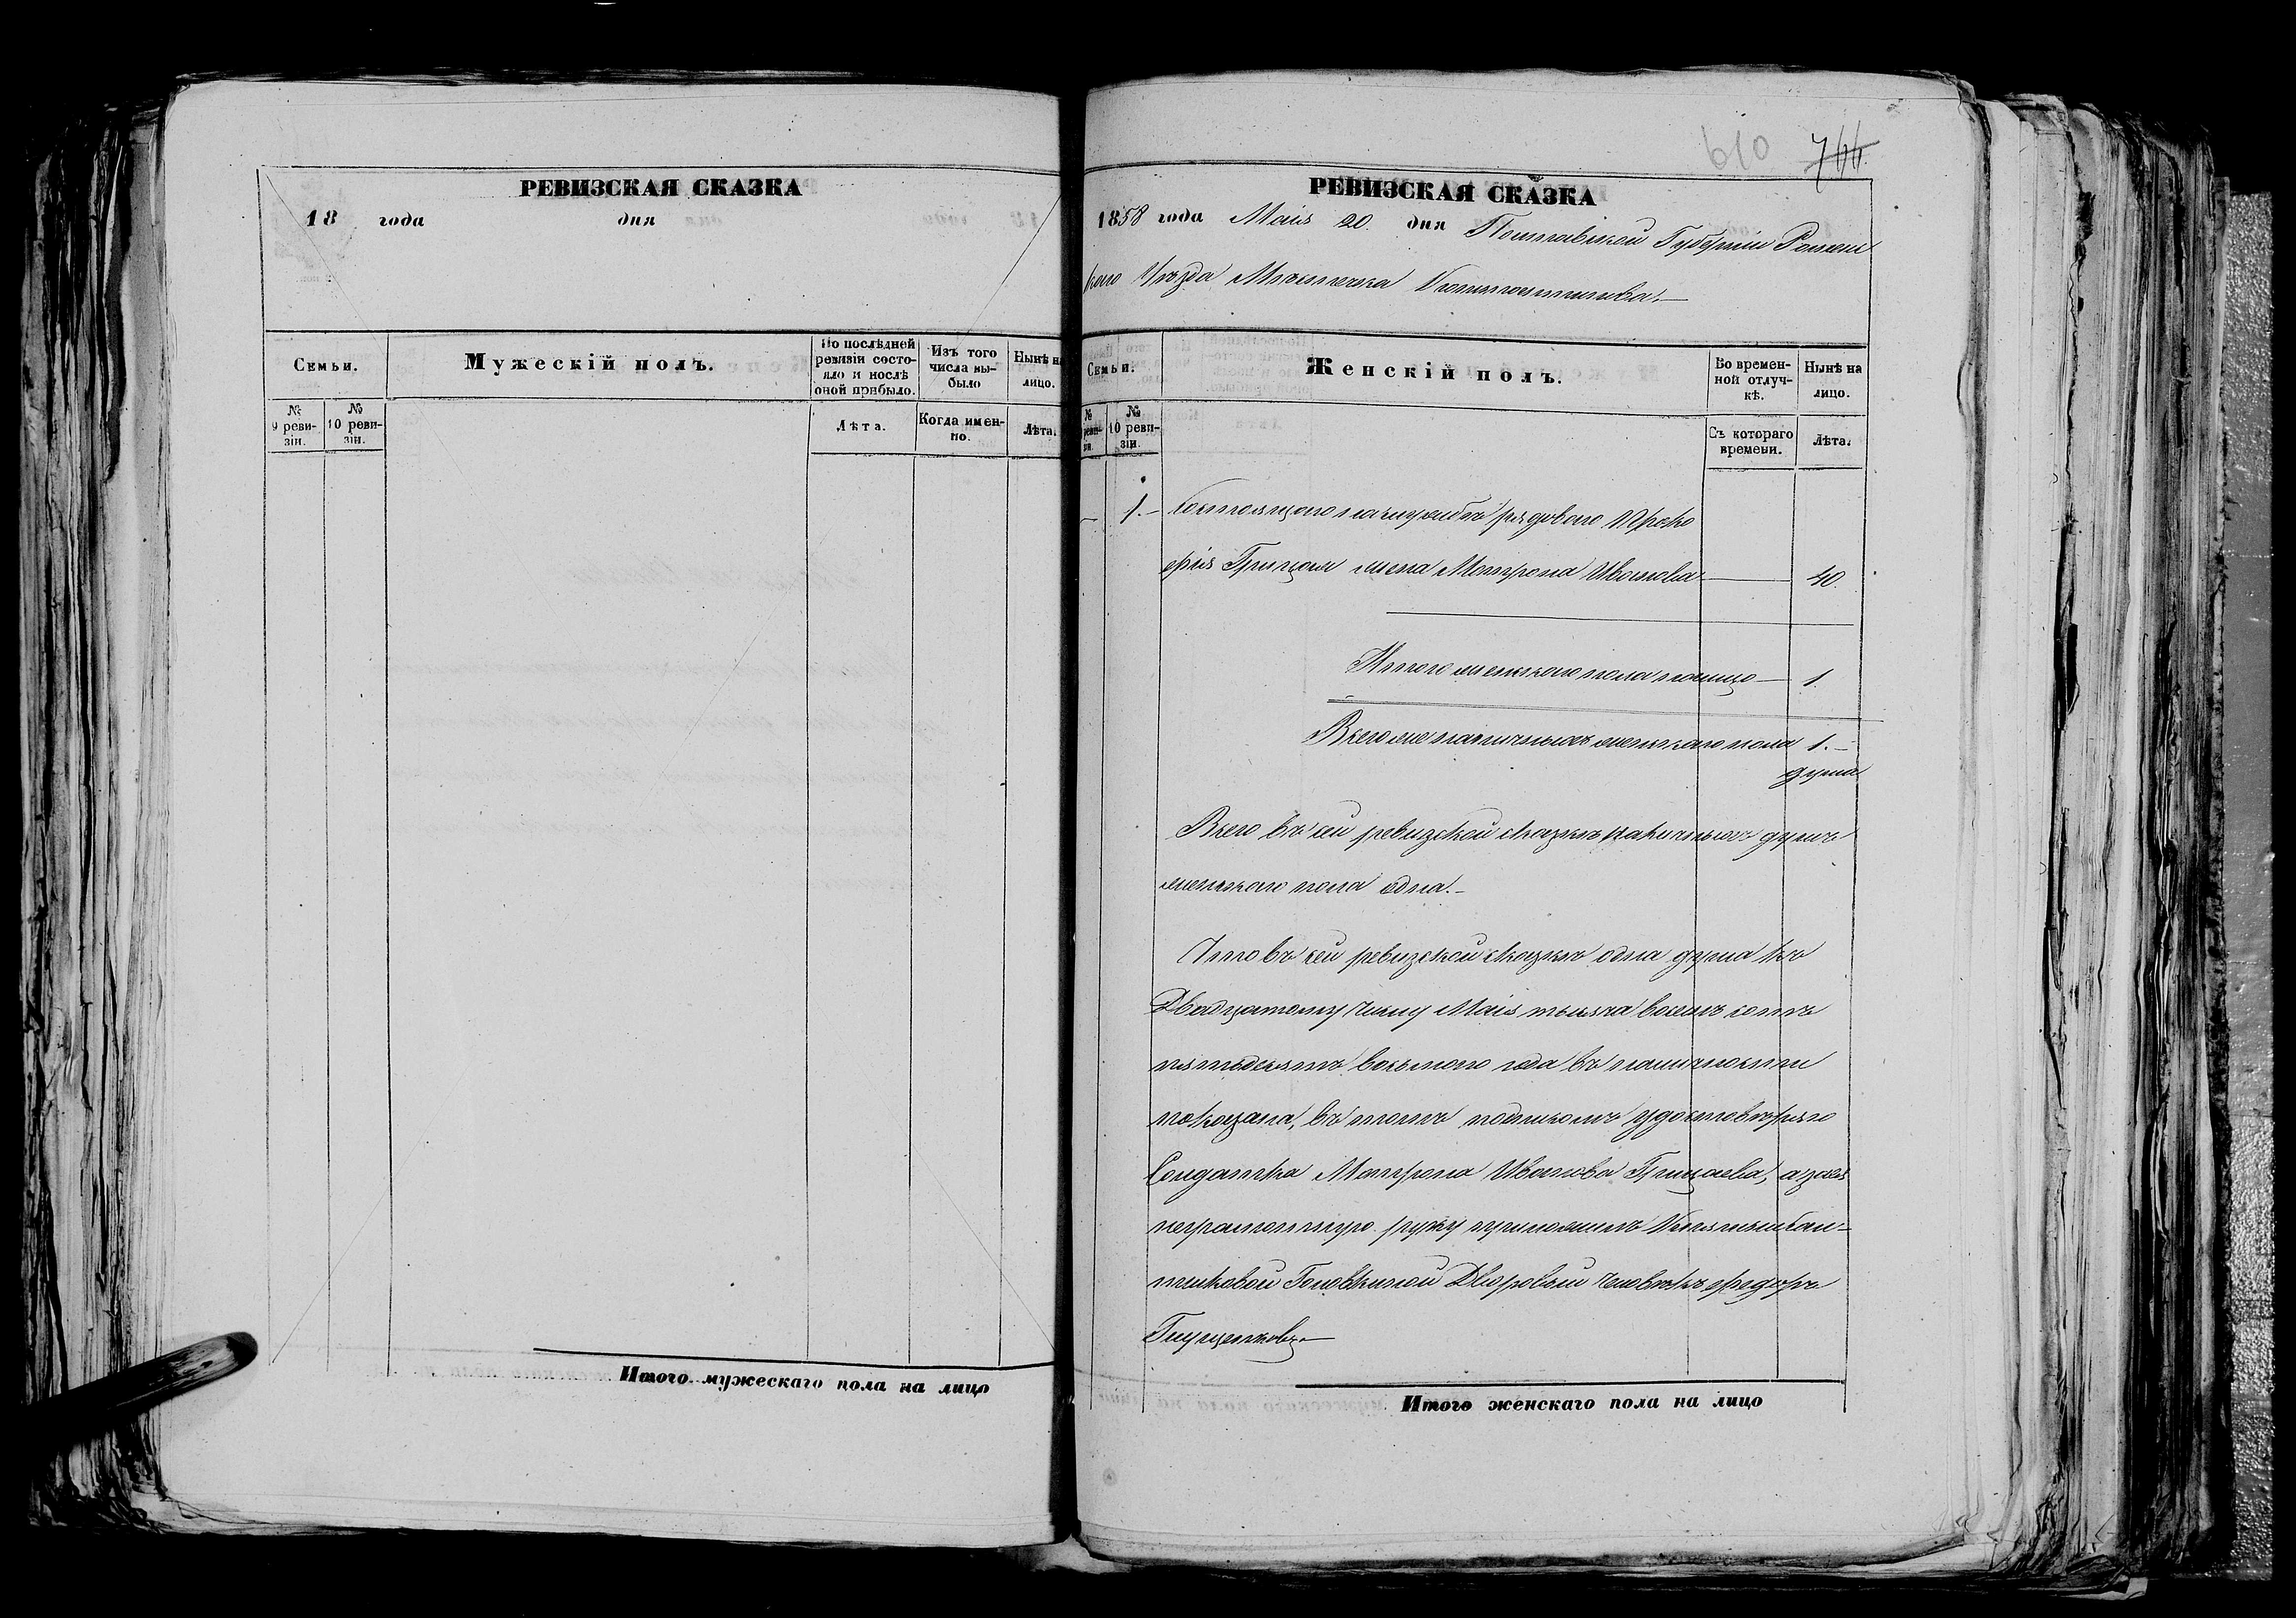 РЕВИЗСКАЯ СКАЗКА
18 года дня
Семьи.
Мужескій полъ.
По послѣдней ревизіи состояло и послѣ оной прибыло.
Изъ того числа выбыло
Нынѣ на лицо.
№ 9 ревизіи.
№ 10 ревизіи.
Лѣта.
Когда именно.
Лѣта.
Итого мужескаго пола на лицо
610 766.
РЕВИЗСКАЯ СКАЗКА
1858 года Маія 20. дня Полтавской Губерніи Ромен
скаго Уѣзда Мѣстечка Константинова.
Семьи.
Женскій полъ.
Во временной отлучкѣ.
Нынѣ на лицо.
№ реви- зіи.
№ 10 ревизіи.
Съ котораго времени.
Лѣта.
1. Состоящаго на службѣ рядового Проко
фія Грицая жена Матрона Иванова 40.
Итого женскаго пола налицо 1.
Всего же наличныхъ женскаго пола 1.
душа
Всего въ сей ревизской сказкѣ наличныхъ душъ
женскаго пола одна.
Что въ сей ревизской сказкѣ одна душа къ
Двадцатому числу Маія тысяча восемь сотъ
пятьдесятъ восьмого года въ наличности
показана, въ томъ подпискомъ удостовѣряю
Солдатка Матрона Иванова Грицаева, а за нея
неграмотную руку приложилъ
Головкиной Дворовый человѣкъ Федоръ
Итого женскаго пола на лицо